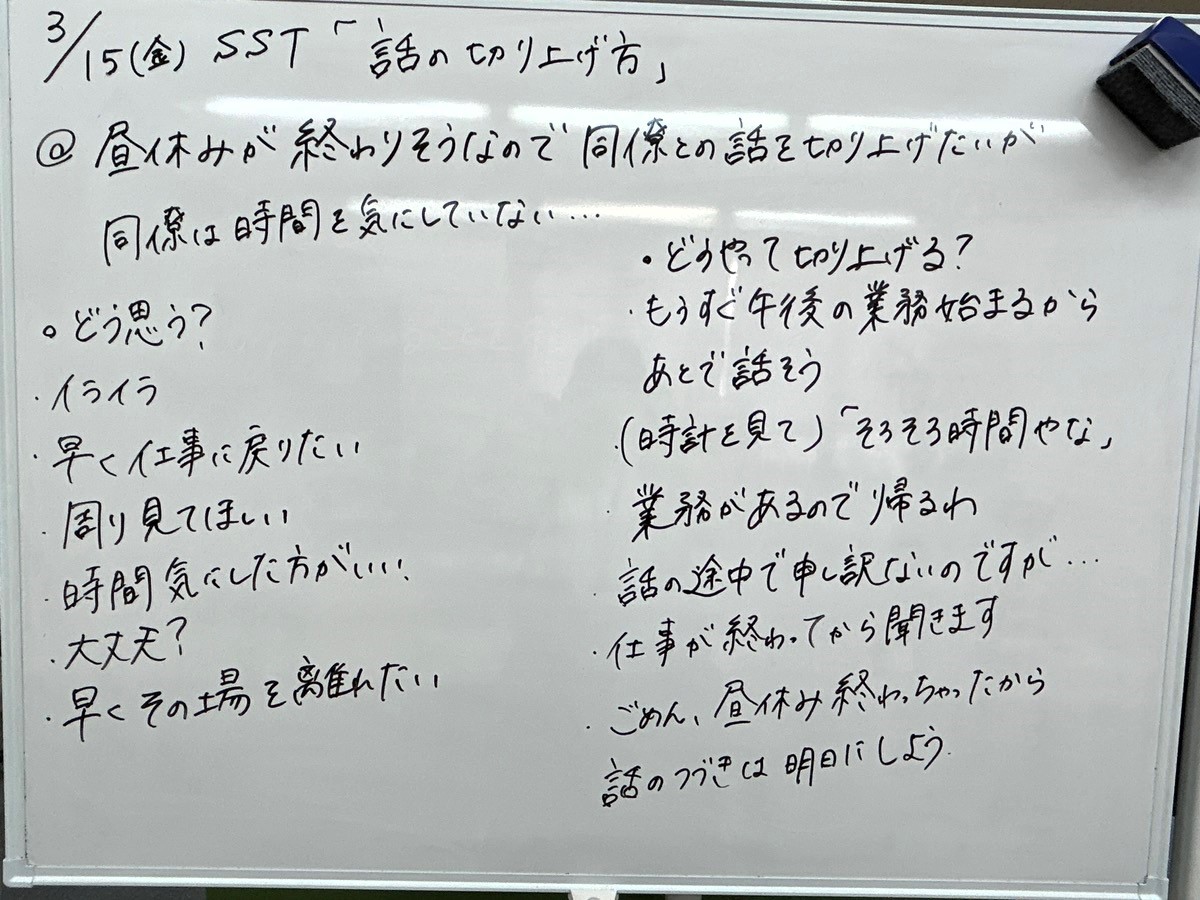 3/15(金) SST「話の切り上げ方」
@ 昼休みが終わりそうなので同僚との話を切り上げたいが
同僚は時間を気にしていない…
○どう思う?
・イライラ
・早く仕事に戻りたい
・周り見てほしい
・時間気にした方がいい
・大丈夫?
・早くその場を離れたい
・どうやって切り上げる?
・もうすぐ午後の業務始まるから
あとで話そう
・(時計を見て)「そろそろ時間やな」
・業務があるので帰るわ
・話の途中で申し訳ないのですが…
・仕事が終わってから聞きます
・ごめん、昼休み終わっちゃったから
話のつづきは明日にしよう.